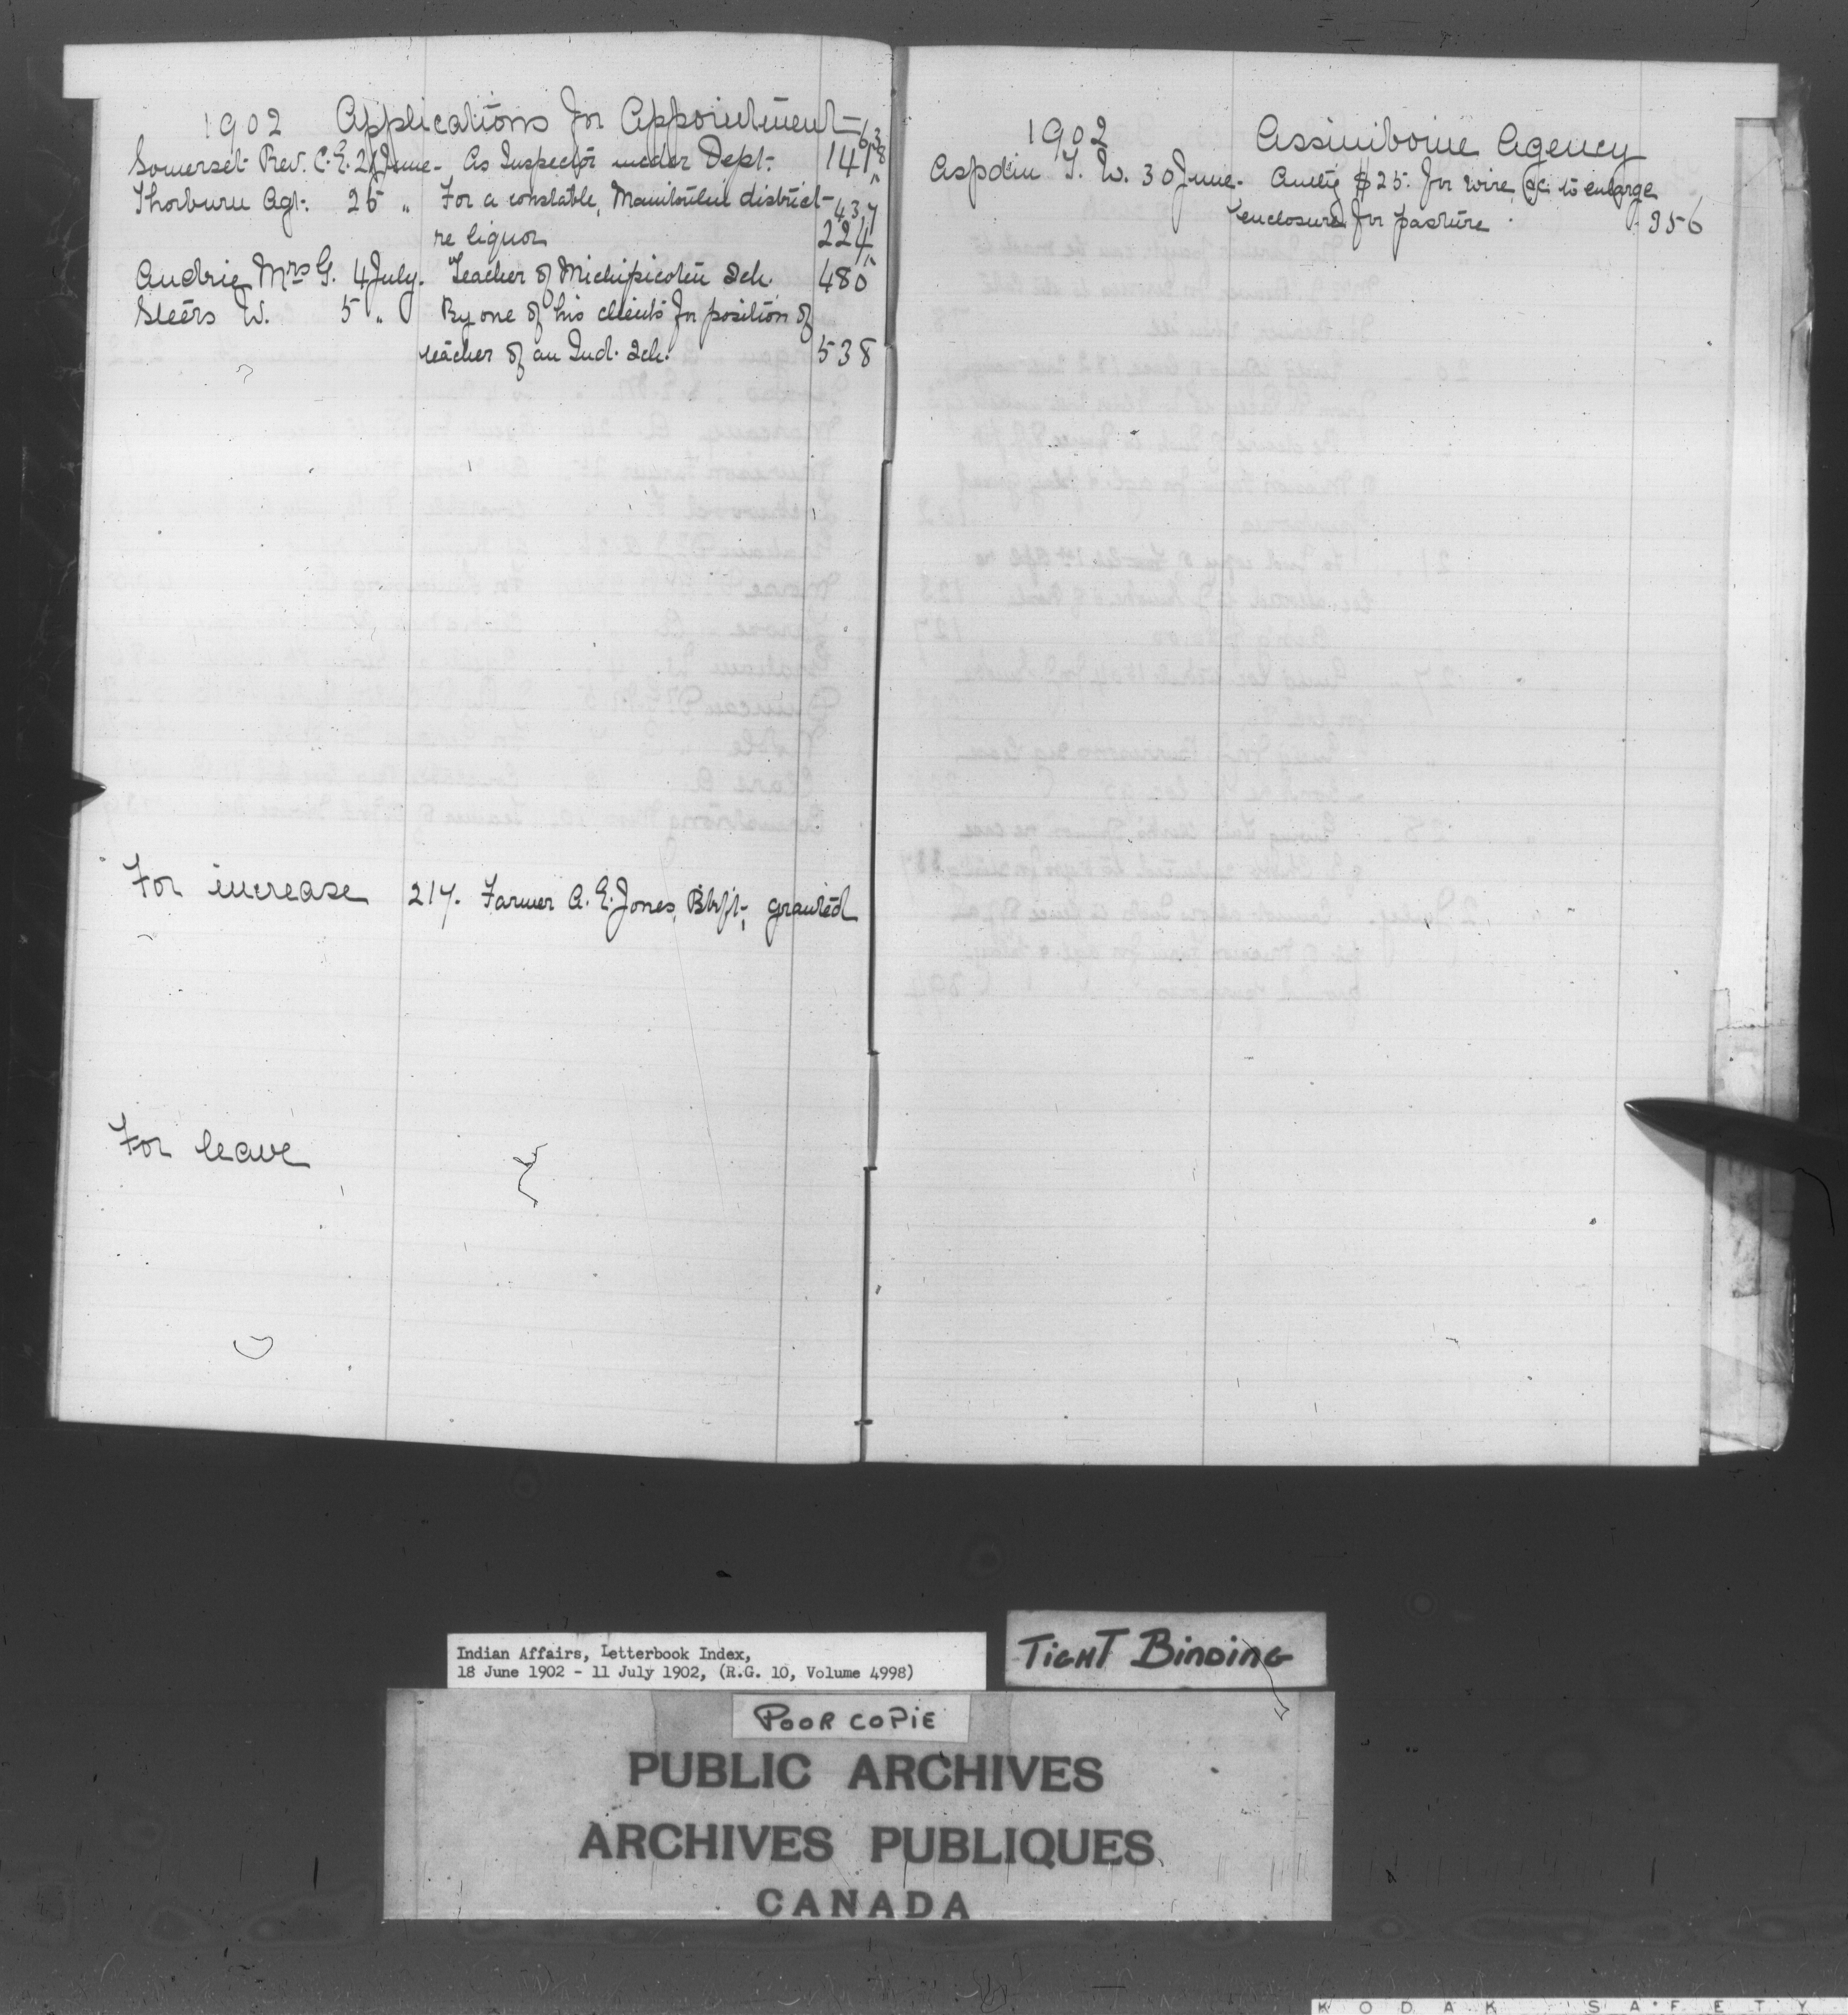 1902 Applications for Appointment
638
Somerset Rev. C. E. 21 June - As Inspector under Dept. 141
Thorburn Agt. 25 " For a constable, Manitoulin district - 437
re liquor 224
Audrie Mrs G. 4 July. Teacher of Michipicoten Sch. 480
Steers W. 5 " By one of his clients for position of
teacher of an Ind. Sch. 538
For increase 217. Farmer A. E. Jones, Btlfd., granted
For leave
1902 Assiniboine Agency
Aspdin T. W. 30 June. Authy $25. for wire, &c. to enlarge
enclosure for pasture. 356
Indian Affairs, Letterbook Index,
18 June 1902 - 11 July 1902, (R.G. 10, Volume 4998)
TIGHT BINDING
POOR COPIE
PUBLIC ARCHIVES
ARCHIVES PUBLIQUES
CANADA
KODAK SAFETY